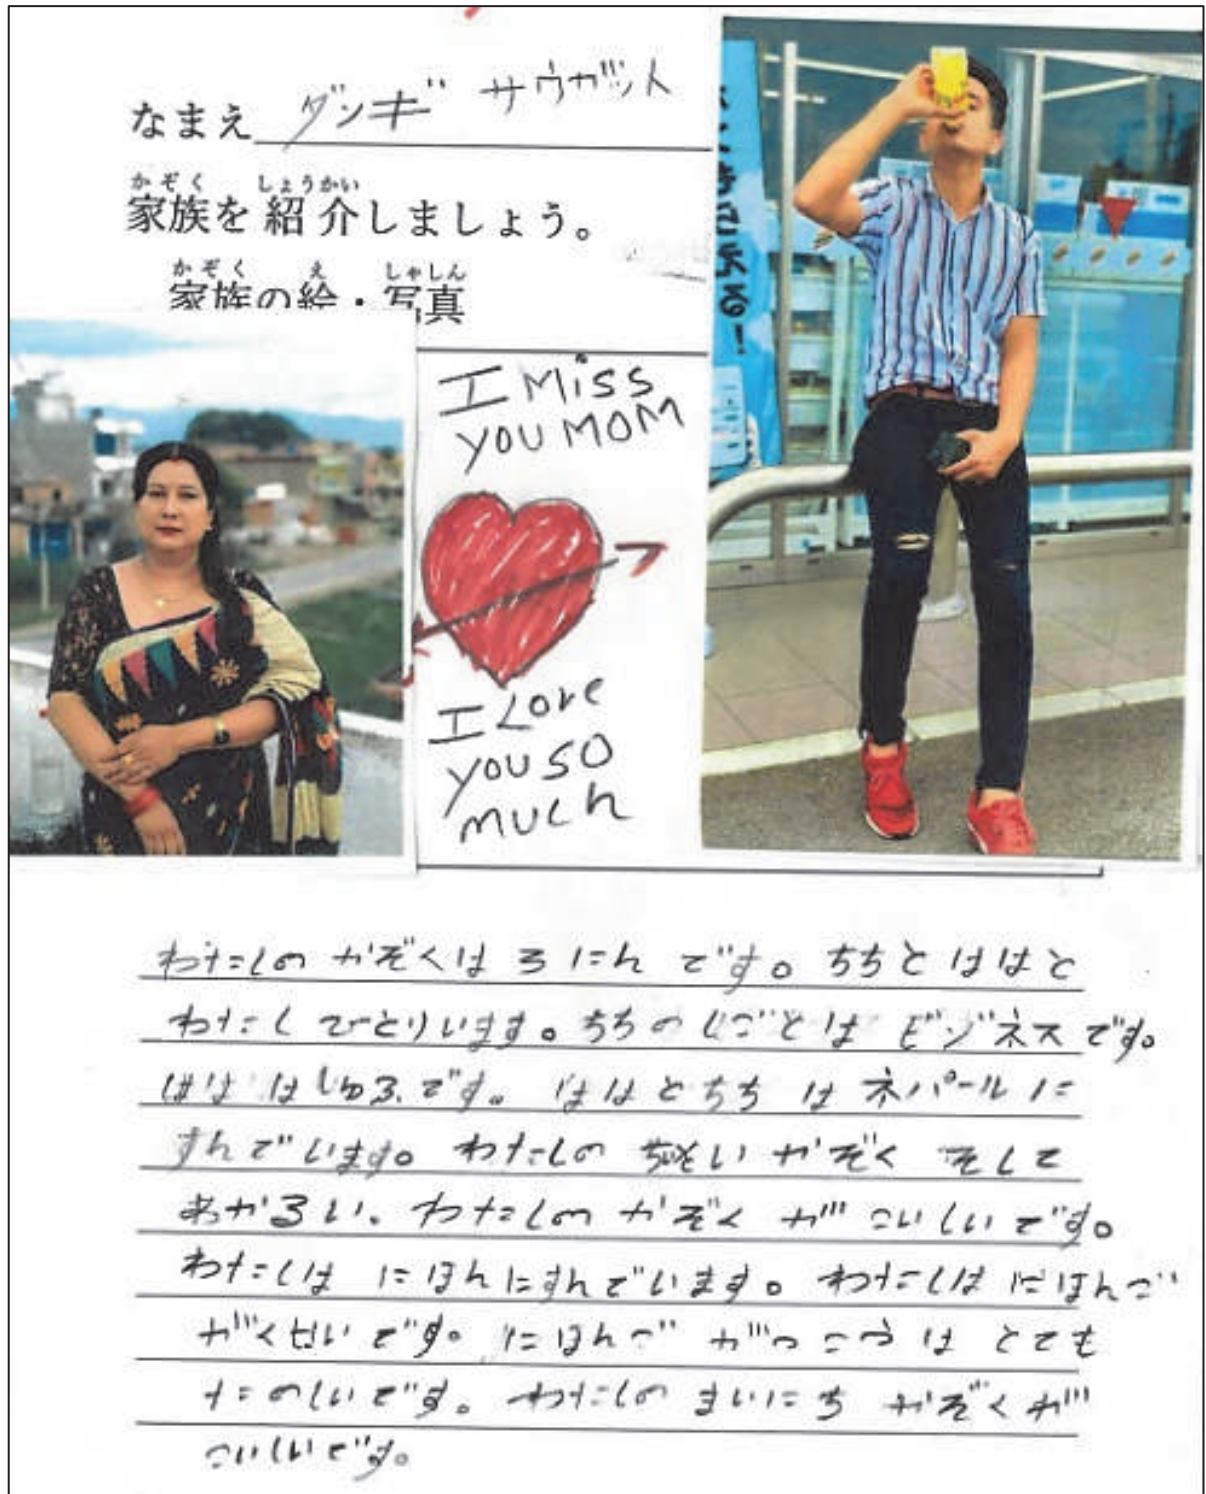 なまえ ダンギ サウガット
かぞく しょうかい
家族を紹介しましょう。
かぞく え しゃしん
家族の絵・写真
I MISS
YOU MOM
I Love
you so
much
わたしの かぞくは 3 にん です。ちちと ははと
わたし ひとりいます。ちちの しごとは ビジネスです。
はは は しゅふ です。 ははと ちち は ネパールに
すんでいます。わたしの かぞく そして
あかるい、わたしの かぞく が こいしいです。
わたしは にほんにすんでいます。わたしは にほんご
がくせいです。にほんご がっこうは とても
たのしいです。わたしの まいにち かぞくが
こいしいです。